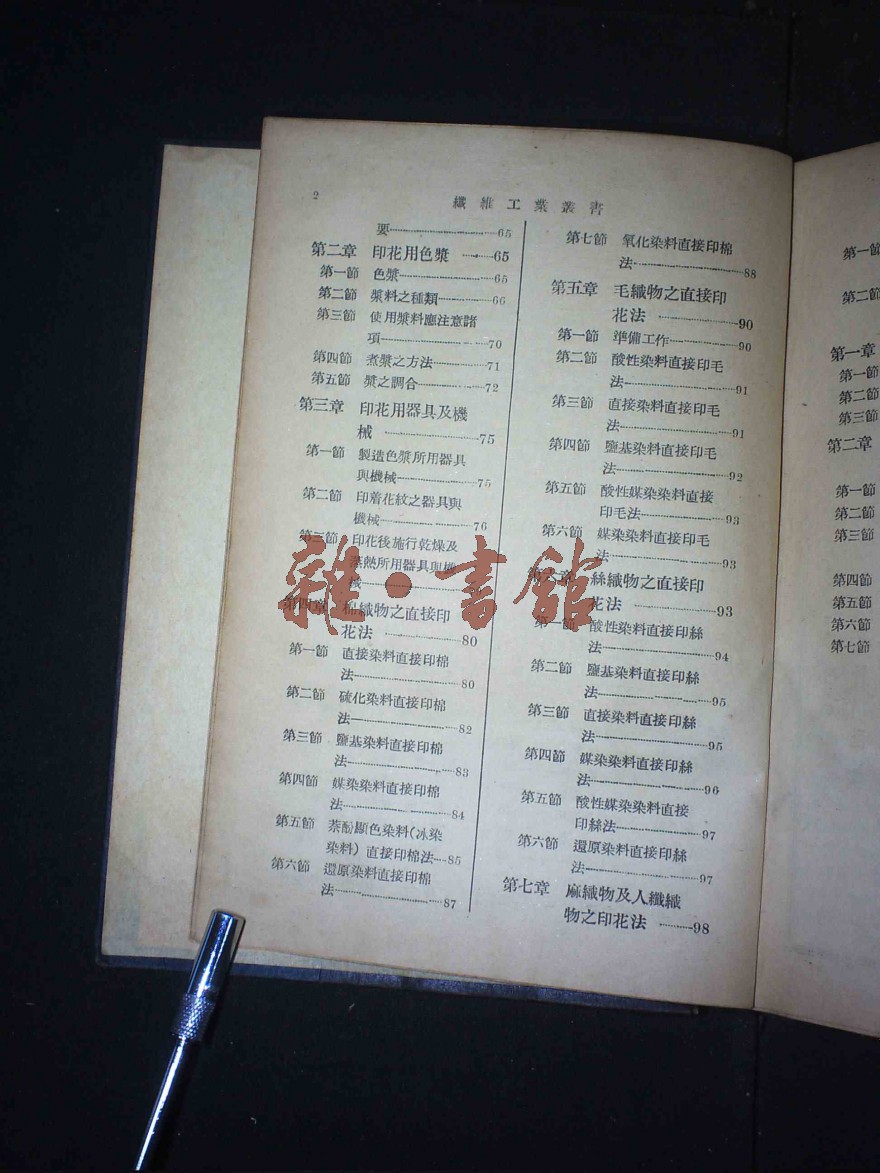 2
纖維工業叢書
要……65
第二章 印花用色漿……65
第一節 色漿……65
第二節 漿料之種類……66
第三節 使用漿料應注意諸
項……70
第四節 煮漿之方法……71
第五節 漿之調合……72
第三章 印花用器具及機
械……75
第一節 製造色漿所用器具
與機械……75
第二節 印着花紋之器具與
機械……76
第三節 印花後施行乾燥及
蒸熱所用器具與機
械……
第四章 棉織物之直接印
花法……80
第一節 直接染料直接印棉
法……80
第二節 硫化染料直接印棉
法……82
第三節 鹽基染料直接印棉
法……83
第四節 媒染染料直接印棉
法……84
第五節 萘酚顯色染料(冰染
染料)直接印棉法……85
第六節 還原染料直接印棉
法……87
第七節 氧化染料直接印棉
法……88
第五章 毛織物之直接印
花法……90
第一節 準備工作……90
第二節 酸性染料直接印毛
法……91
第三節 直接染料直接印毛
法……91
第四節 鹽基染料直接印毛
法……92
第五節 酸性媒染染料直接
印毛法……93
第六節 媒染染料直接印毛
法……93
第六章 絲織物之直接印
花法……93
第一節 酸性染料直接印絲
法……94
第二節 鹽基染料直接印絲
法……95
第三節 直接染料直接印絲
法……95
第四節 媒染染料直接印絲
法……96
第五節 酸性媒染染料直接
印絲法……97
第六節 還原染料直接印絲
法……97
第七章 麻織物及人纖織
物之印花法……98
第一節
第二節
第一章
第一節
第二節
第三節
第二章
第一節
第二節
第三節
第四節
第五節
第六節
第七節
雜·書館